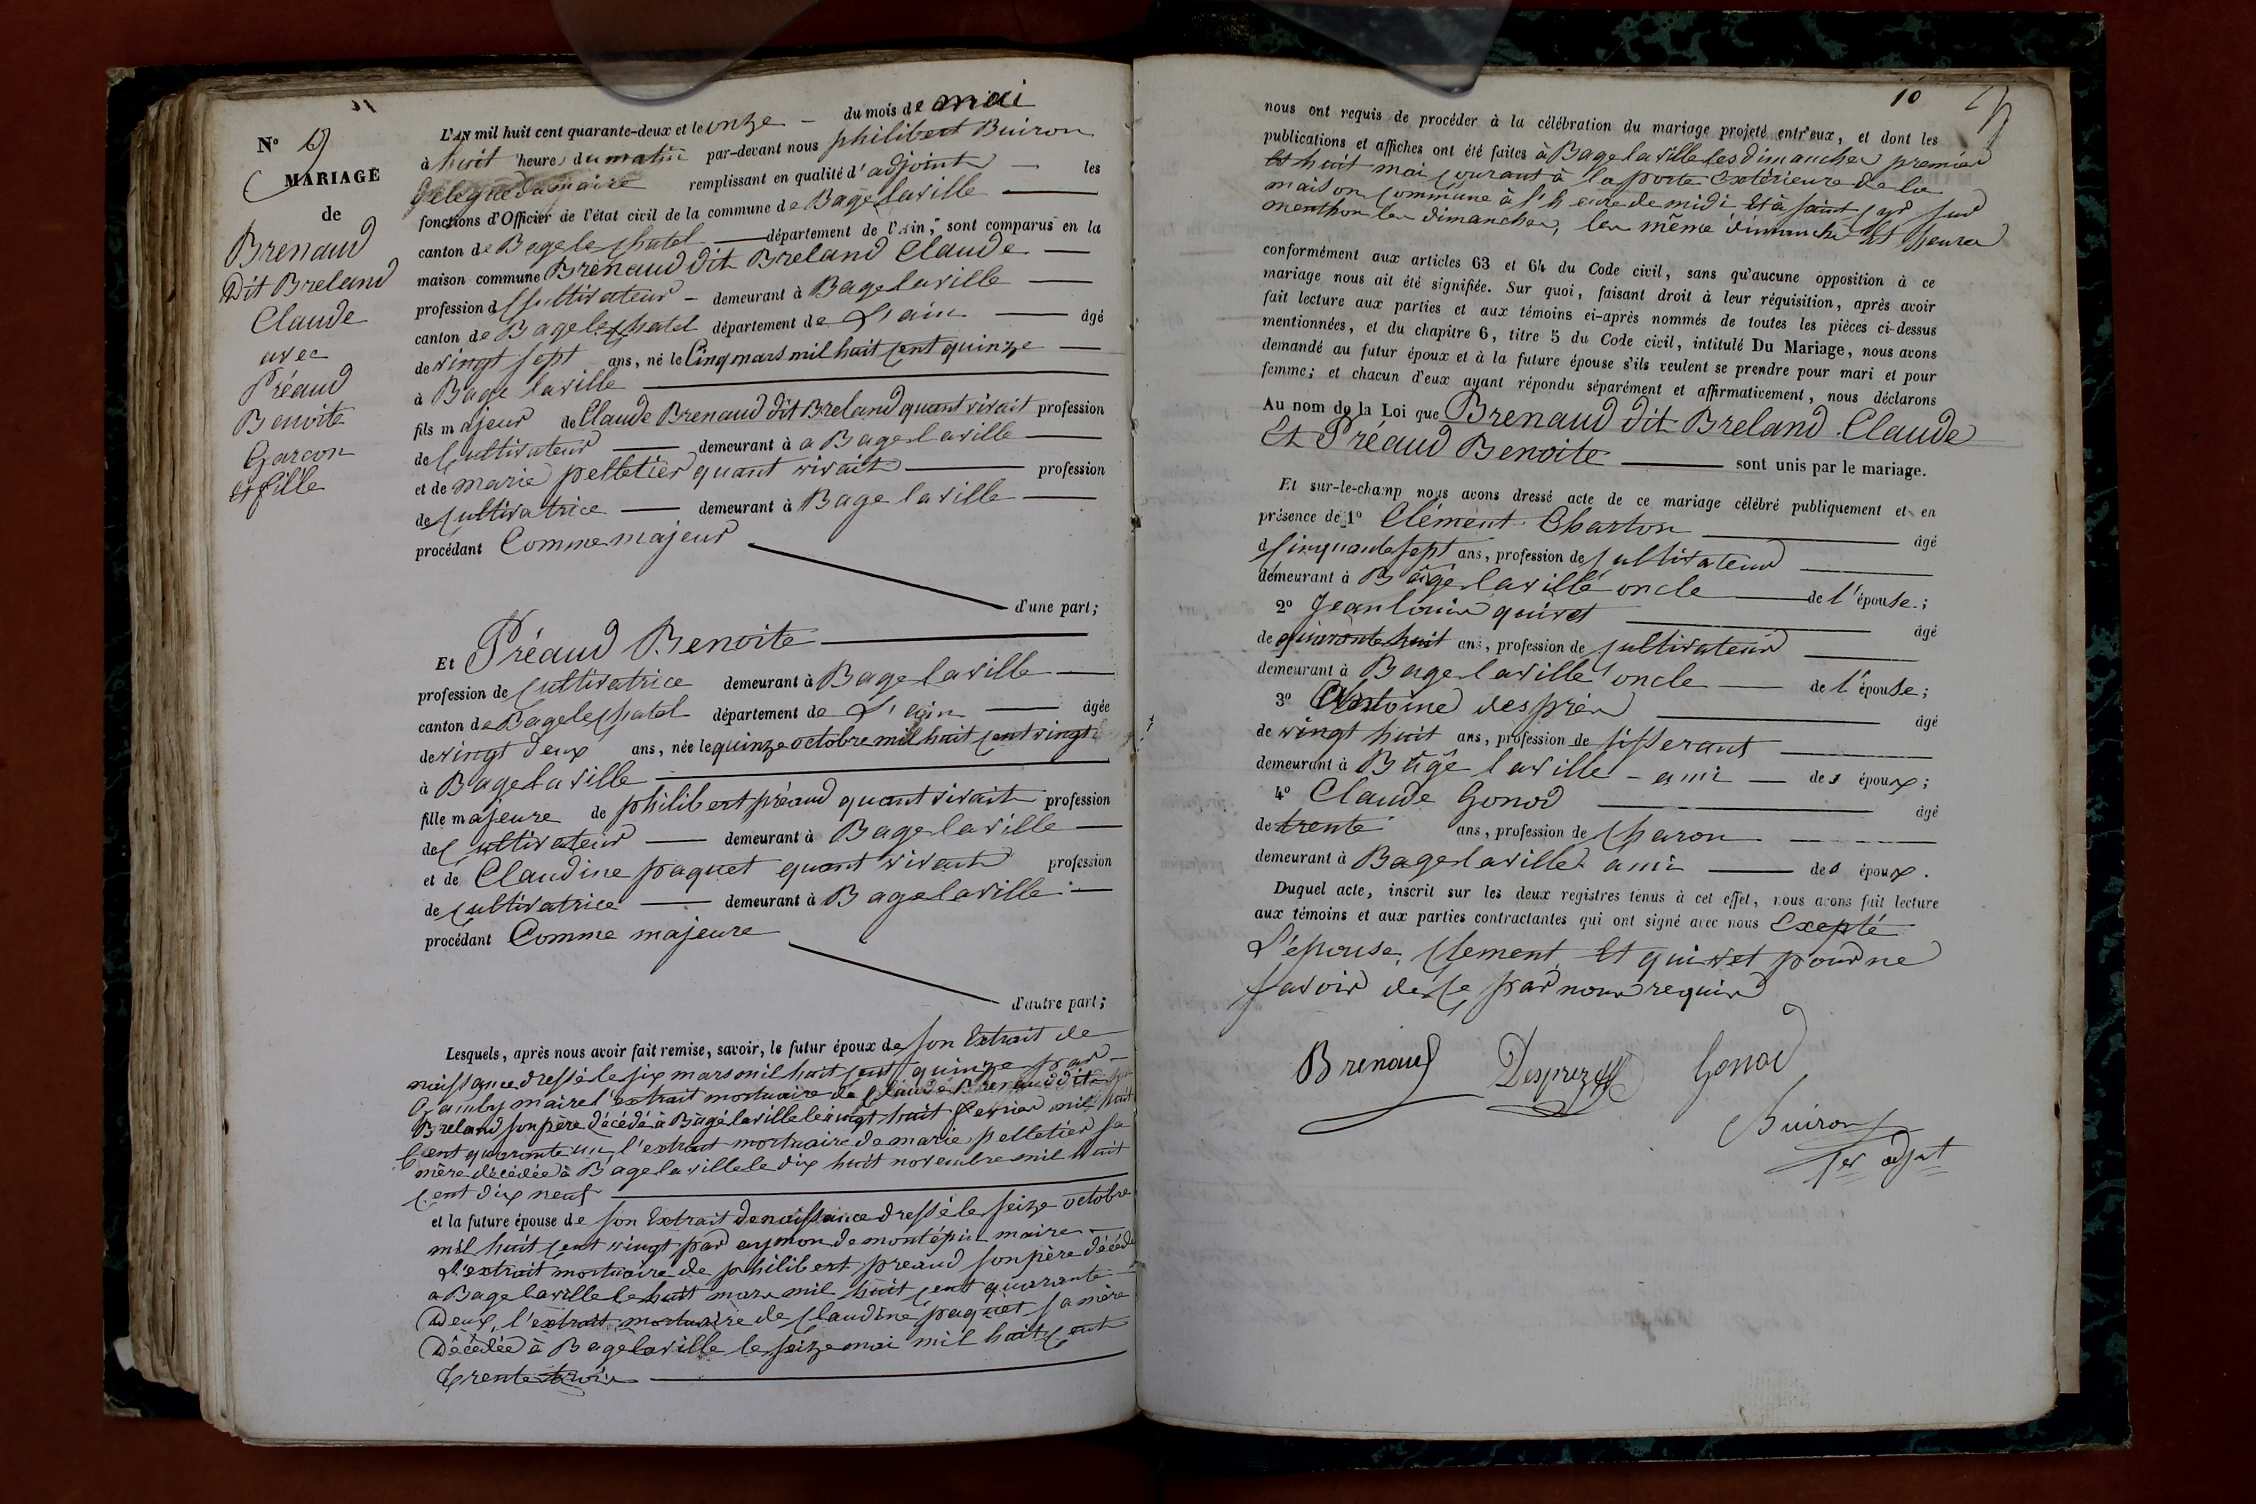 N° 9
MARIAGE
de
Brenaud
Dit Breland
Claude
avec
Préaud
Benoite
Garcon
et fille
L'AN mil huit cent quarante-deux et le onze du mois de mai
à huit heures du matin par-devant nous philibert Buiron
délégué du maire remplissant en qualité d'adjoint les
fonctions d'Officier de l'état civil de la commune de Bagé laville
canton de Bage le chatel département de l'Ain, sont comparus en la
maison commune Brenaud dit Breland Claude
profession de Cultivateur demeurant à Bage laville
canton de Bage le chatel département de L'ain âgé
de vingt sept ans, né le Cinq mars mil huit cent quinze
à Bage laville
fils majeur de Claude Brenaud dit Breland quant vivait profession
de Cultivateur demeurant à a Bage laville
et de marie pelletier quant vivait profession
de cultivatrice demeurant à Bage laville
procédant Comme majeur
d'une part;
Et Préaud Benoite
profession de cultivatrice demeurant à Bage laville
canton de Bage le chatel département de L'ain âgée
de vingt deux ans, née le quinze octobre mil huit cent vingt
à Bage laville
fille majeure de philibert préaud quant vivait profession
de Cultivateur demeurant à Bage laville
et de Claudine paquet quant vivait profession
de cultivatrice demeurant à Bage laville
procédant Comme majeure
d'autre part;
Lesquels, après nous avoir fait remise, savoir, le futur époux de son Extrait de
naissance dressé le six mars mil huit cent quinze par
maire l'extrait mortuaire de Claude Brenaud dit
Breland son père décédé à Bagé laville le vingt huit fevrier mil huit
cent quarante un, l'extrait mortuaire de marie pelletier sa
mère décédée à Bage laville le dix huit novembre mil huit
cent dix neuf
et la future épouse de son Extrait de naissance dressé le seize octobre
mil huit cent vingt par aymon de montépin maire
l'extrait mortuaire de philibert préaud son père décédé
a Bage laville le huit mars mil huit cent quarante
Deux, l'extrait mortuaire de Claudine paquet sa mère
Décédée à Bage laville le seize mai mil huit cent
Trente trois
10
nous ont requis de procéder à la célébration du mariage projeté entr'eux, et dont les
publications et affiches ont été faites à Bage la ville les dimanches premier
et huit mai courant à la porte Extérieure de la
maison commune à l'heure de midi et à saint cyr sur
menthon les dimanches, les même dimanche et heures
conformément aux articles 63 et 64 du Code civil, sans qu'aucune opposition à ce
mariage nous ait été signifiée. Sur quoi, faisant droit à leur réquisition, après avoir
fait lecture aux parties et aux témoins ci-après nommés de toutes les pièces ci-dessus
mentionnées, et du chapitre 6, titre 5 du Code civil, intitulé Du Mariage, nous avons
demandé au futur époux et à la future épouse s'ils veulent se prendre pour mari et pour
femme; et chacun d'eux ayant répondu séparément et affirmativement, nous déclarons
Au nom de la Loi que Brenaud dit Breland Claude
et Préaud Benoite sont unis par le mariage.
Et sur-le-champ nous avons dressé acte de ce mariage célébré publiquement et en
présence de 1° Clément Charton âgé
de Cinquante sept ans, profession de cultivateur
demeurant à Bagé laville oncle de l'épouse;
2° Jean louis quivet âgé
de quarante huit ans, profession de cultivateur
demeurant à Bage laville oncle de l'épouse;
3° Antoine desprér âgé
de vingt huit ans, profession de tisserant
demeurant à Bagé laville - ami des époux;
4° Claude Gonod âgé
de trente ans, profession de charon
demeurant à Bage laville ami des époux.
Duquel acte, inscrit sur les deux registres tenus à cet effet, nous avons fait lecture
aux témoins et aux parties contractantes qui ont signé avec nous Exepté
L'épouse, Clement et quivet pour ne
savoir de ce par nous requis
Brenaud Desprez Gonod
Buiron
1er adjt